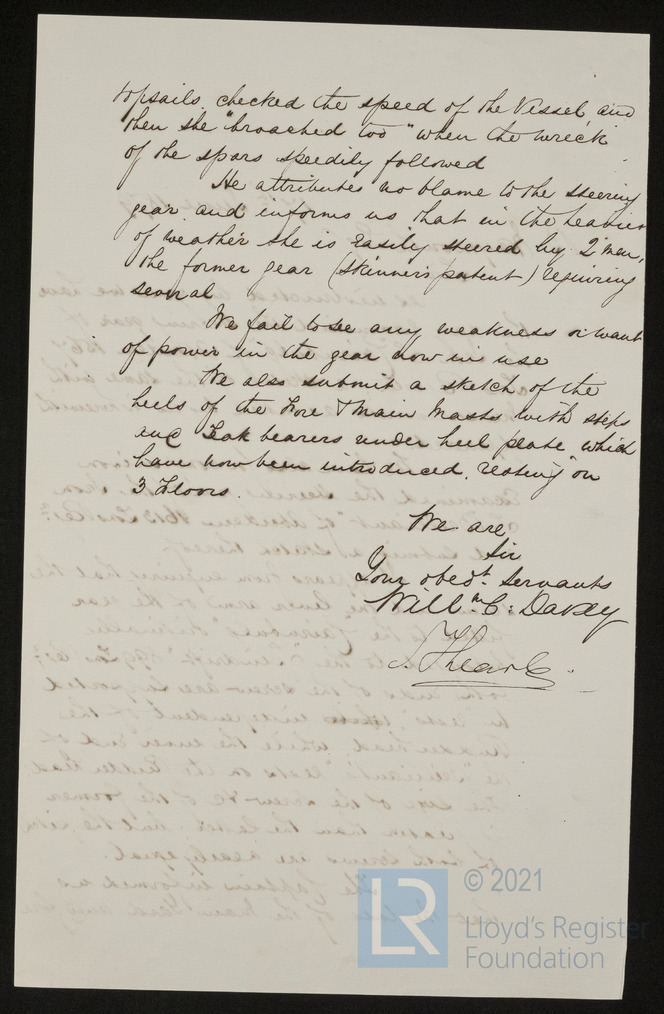 topsails. checked the speed of the Vessel, and
then she "broached too" when the wreck
of the spars speedily followed
He attributes no blame to the steering
gear and informs us that in the heavier
of weather she is easily steered by 2 men,
the former gear (Skinner's patent) requiring
several
We fail to see any weakness or want
of power in the gear now in use
We also submit a sketch of the
heels of the Fore & Main Masts with steps
and Teak bearers under heel plate which
have now been introduced, resting on
3 Floors.
We are,
Sir
Your obedt. Servants
Willm. C: Davey
© 2021
LR
Lloyd's Register
Foundation